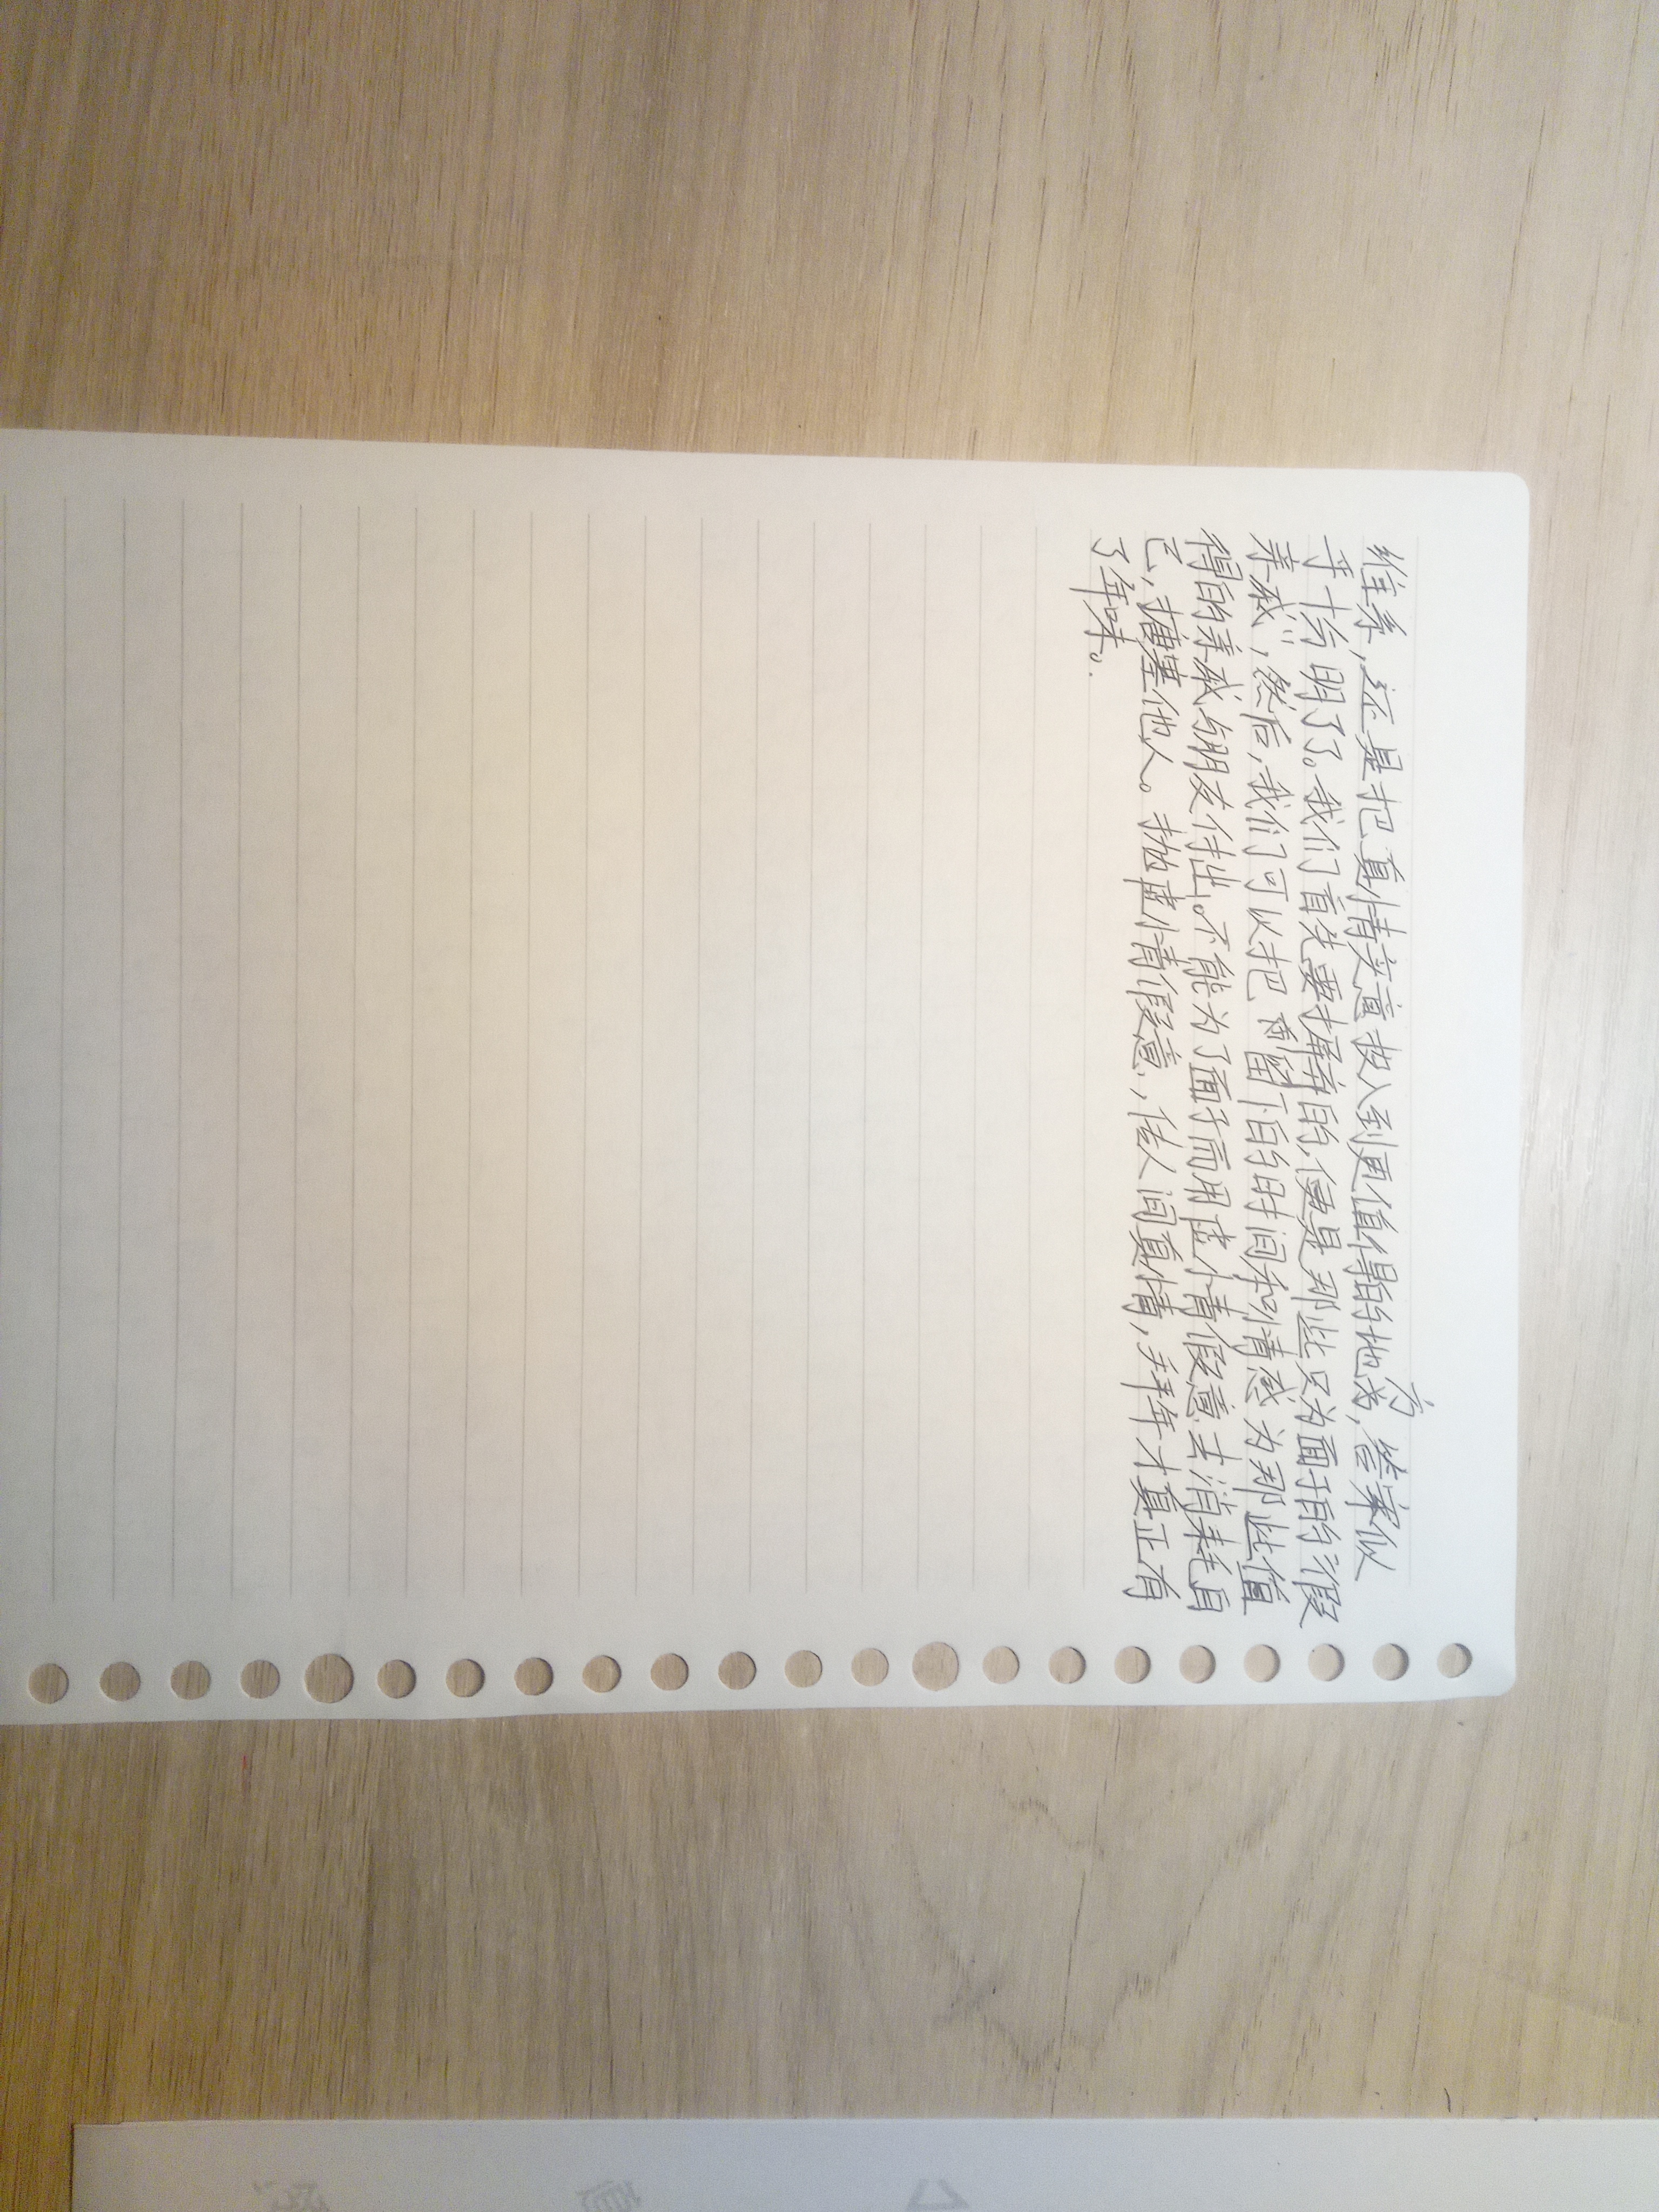 维系，还是把真情实意投入到更值得的地方，答案似
乎十分明了。我们首先要摒弃的便是那些只为面子的“假
亲戚”，然后，我们可以把省留下的时间和情感为那些值
得的亲戚与朋友付出。不能为了面子而用虚情假意去消耗自
己，搪塞他人。抛虚情假意，使人间真情，拜年才真正有
了年味。